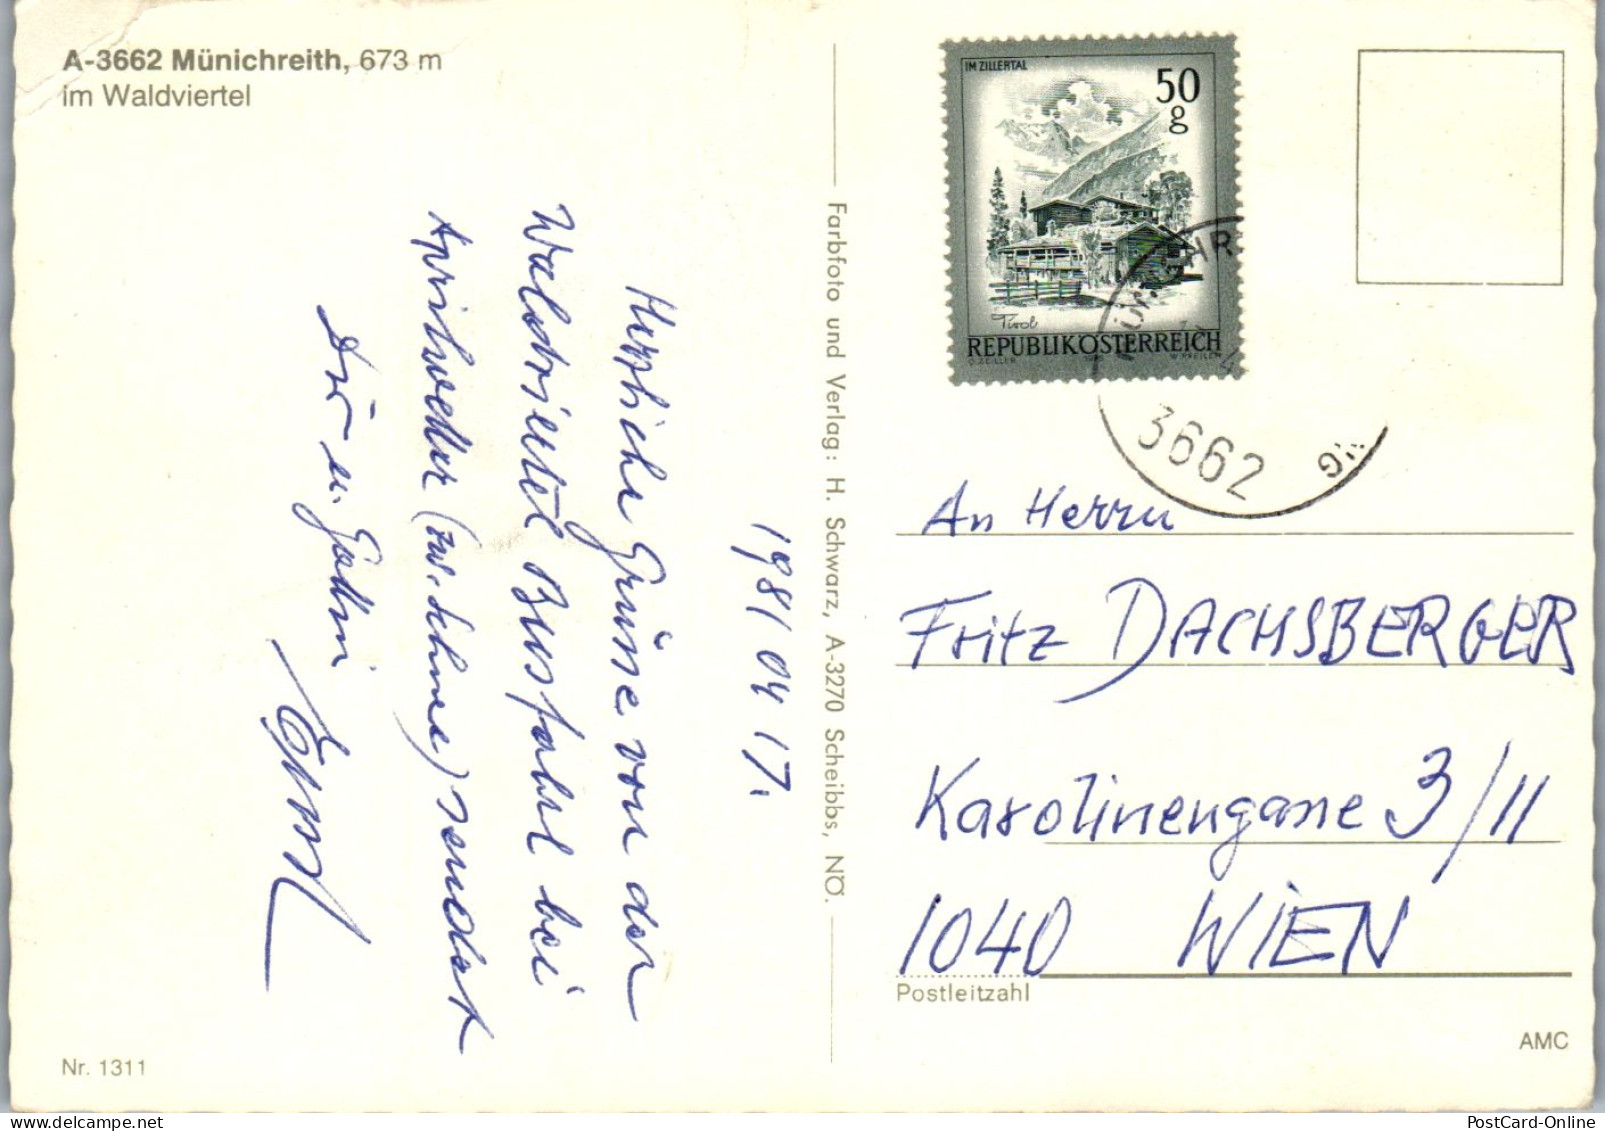 A-3662 Münichreith, 673 m
im Waldviertel
1981 04 17.
Herzliche Grüsse von der
Waldviertel Busfahrt bei
Aprilwetter (zw. Schnee) sendet
Dir u. Gattin
Nr. 1311
Farbfoto und Verlag: H. Schwarz, A-3270 Scheibbs, NÖ.
IM ZILLERTAL
50
g
Tirol
REPUBLIK ÖSTERREICH
3662
An Herrn
Fritz DACHSBERGER
Karolinengasse 3/11
1040 WIEN
Postleitzahl
AMC
PostCard-Online